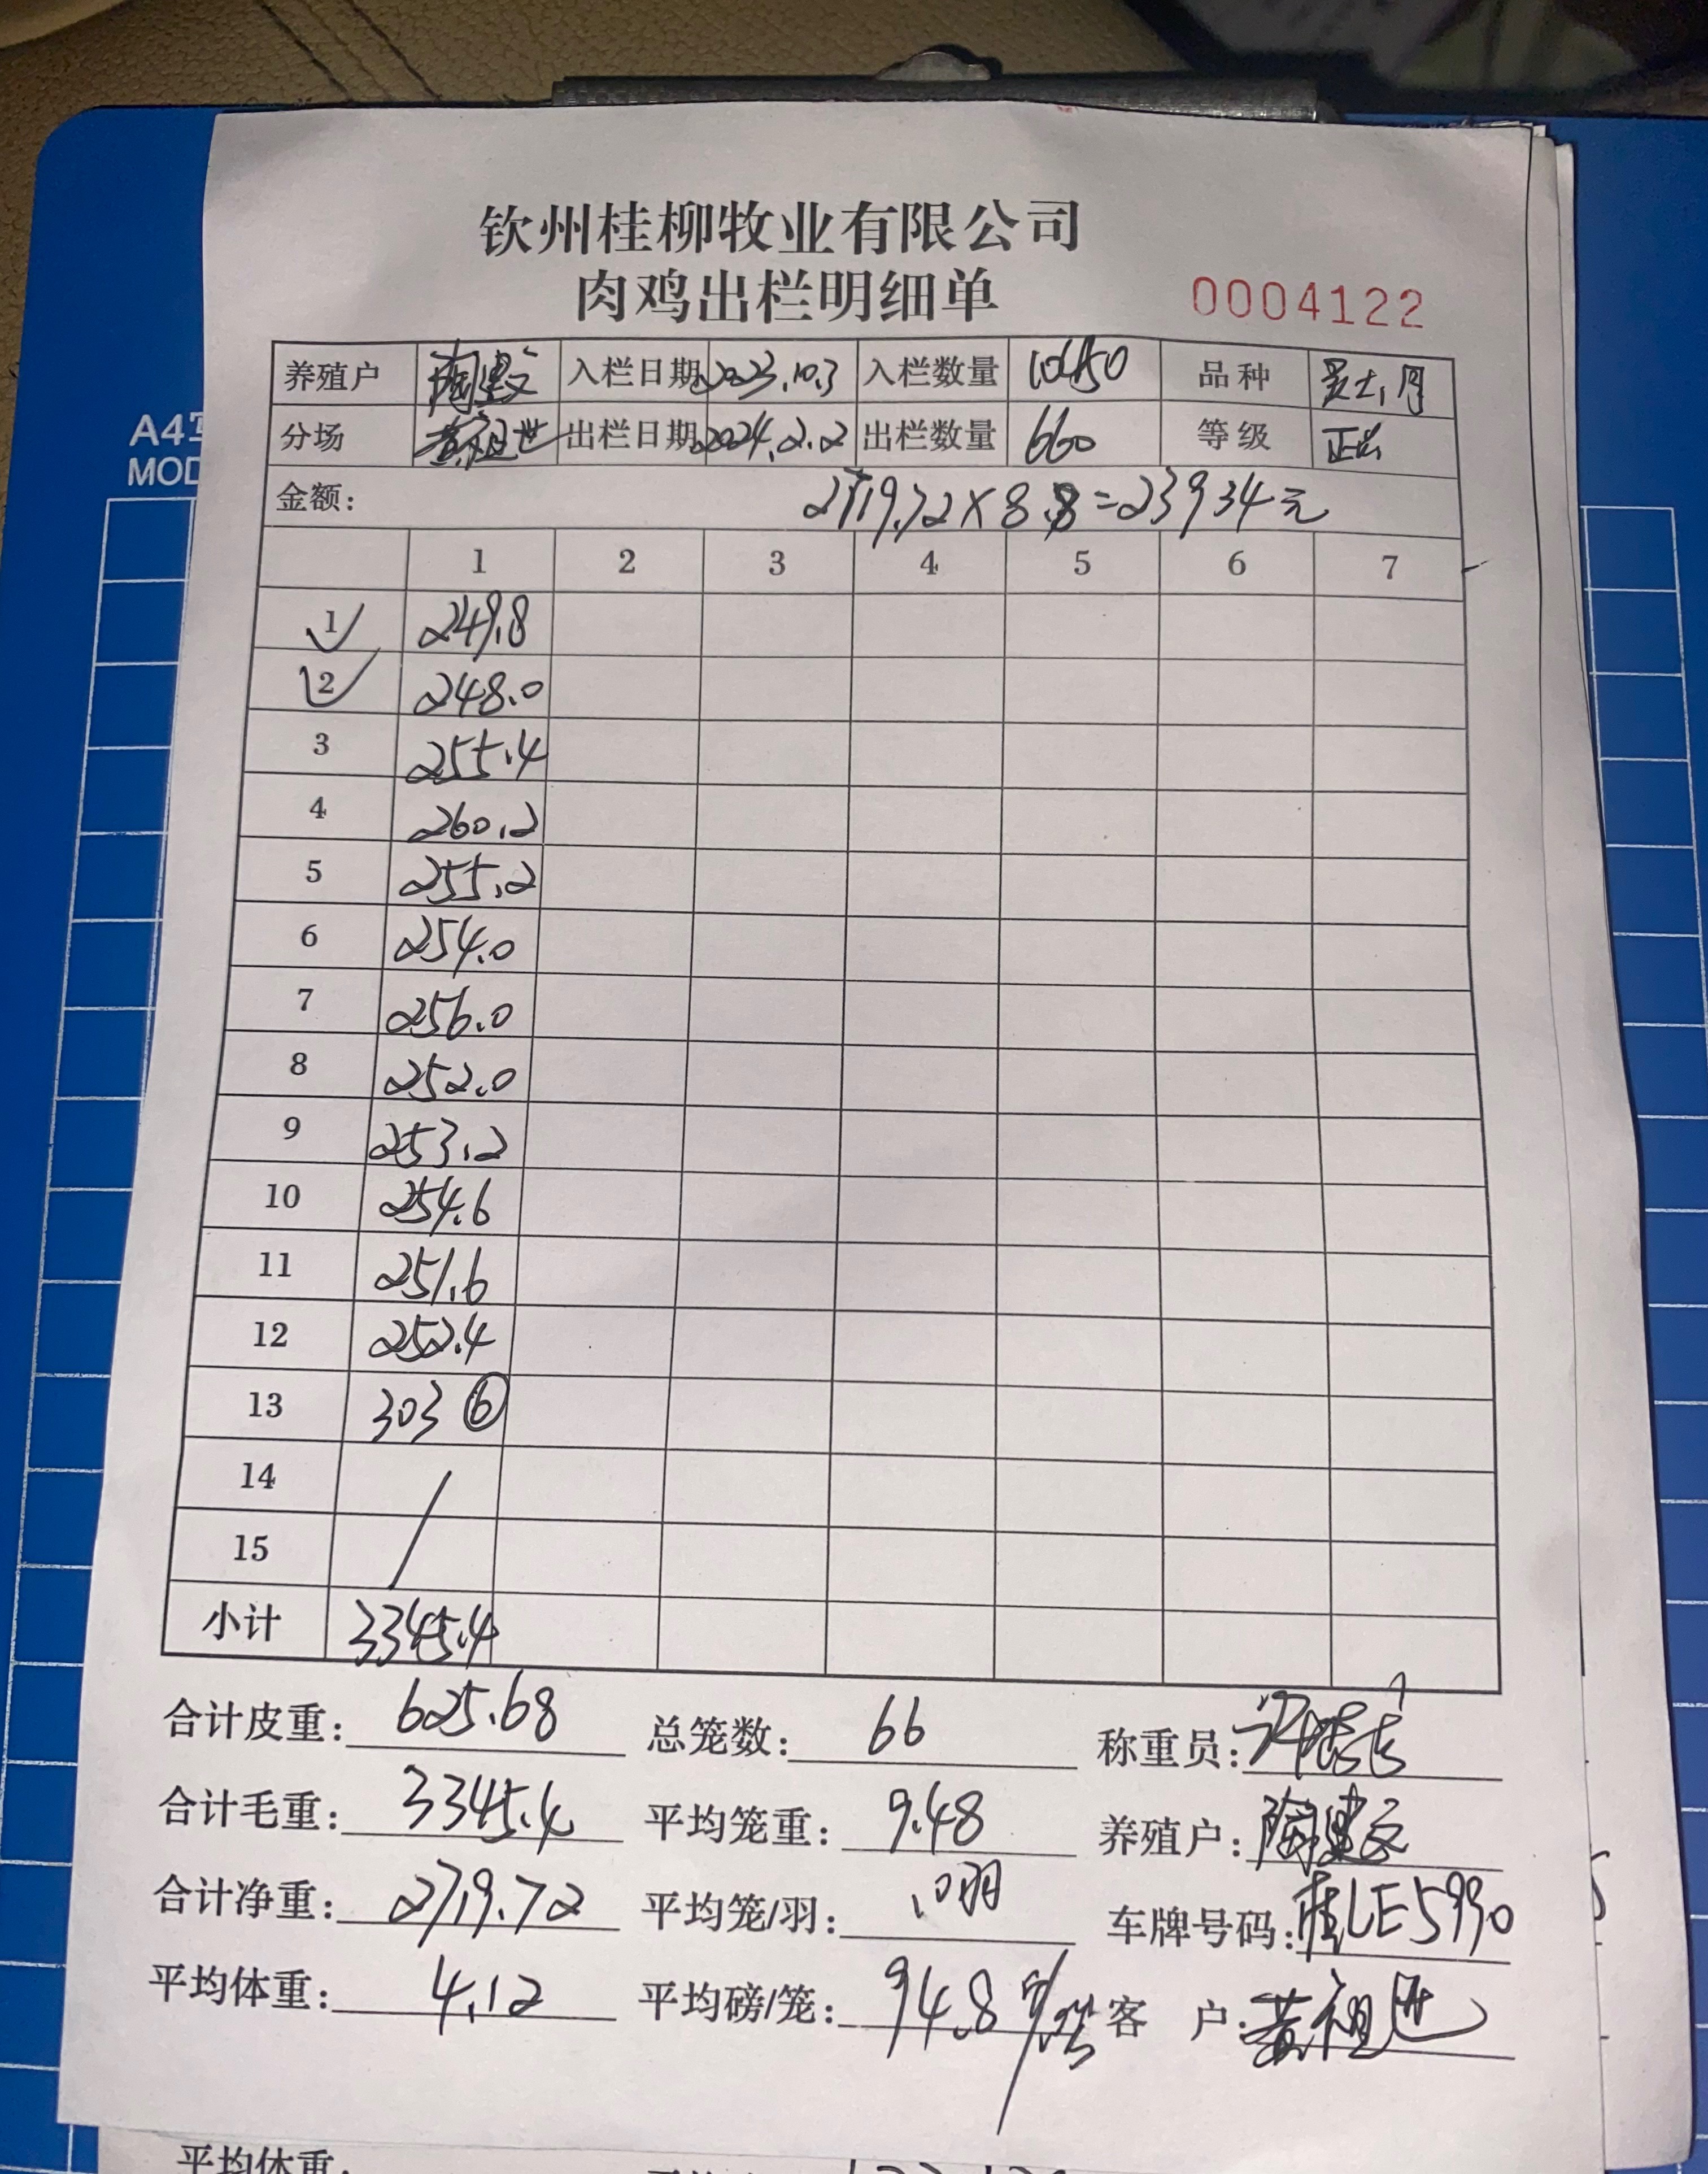 A4
MOD
钦州桂柳牧业有限公司
肉鸡出栏明细单
0004122
养殖户 陶建文 入栏日期 2023.10.3 入栏数量 品种
分场 黄祖世 出栏日期 2024.2.2 出栏数量 660 等级 正品
金额: 2719.72×8.8=23934元
1 2 3 4 5 6 7
1 249.8
2 248.0
3 255.4
4 260.2
5 255.2
6 254.0
7 256.0
8 252.0
9 253.2
10 254.6
11 251.6
12 252.4
13 303 ⑥
14
15
小计 3345.4
合计皮重: 625.68 总笼数: 66 称重员:
合计毛重: 3345.4 平均笼重: 9.48 养殖户: 陶建文
合计净重: 2719.72 平均笼/羽: 10羽 车牌号码: 桂LE5990
平均体重: 4.12 平均磅/笼: 94.8 客 户: 黄祖进
平均体重: